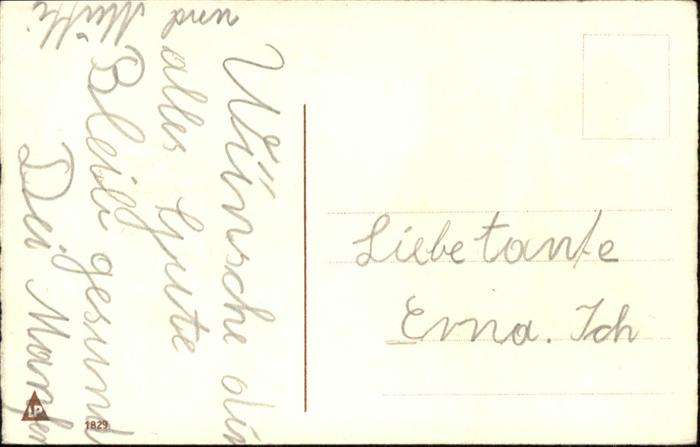 Liebe tante
Erna. Ich
Wünsche dir
alles Gute
und
Bleib gesund
Dei
LP
1829